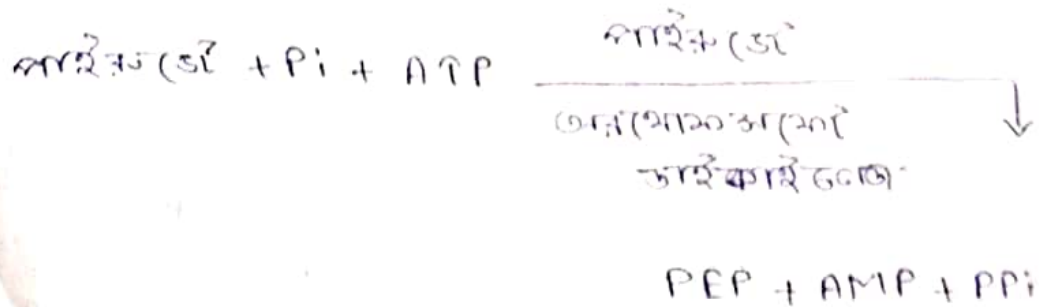 পাইরুভেট + Pi + ATP
পাইরুভেট
অর্থোফসফেট
ডাইকাইনেজ
PEP + AMP + PPi